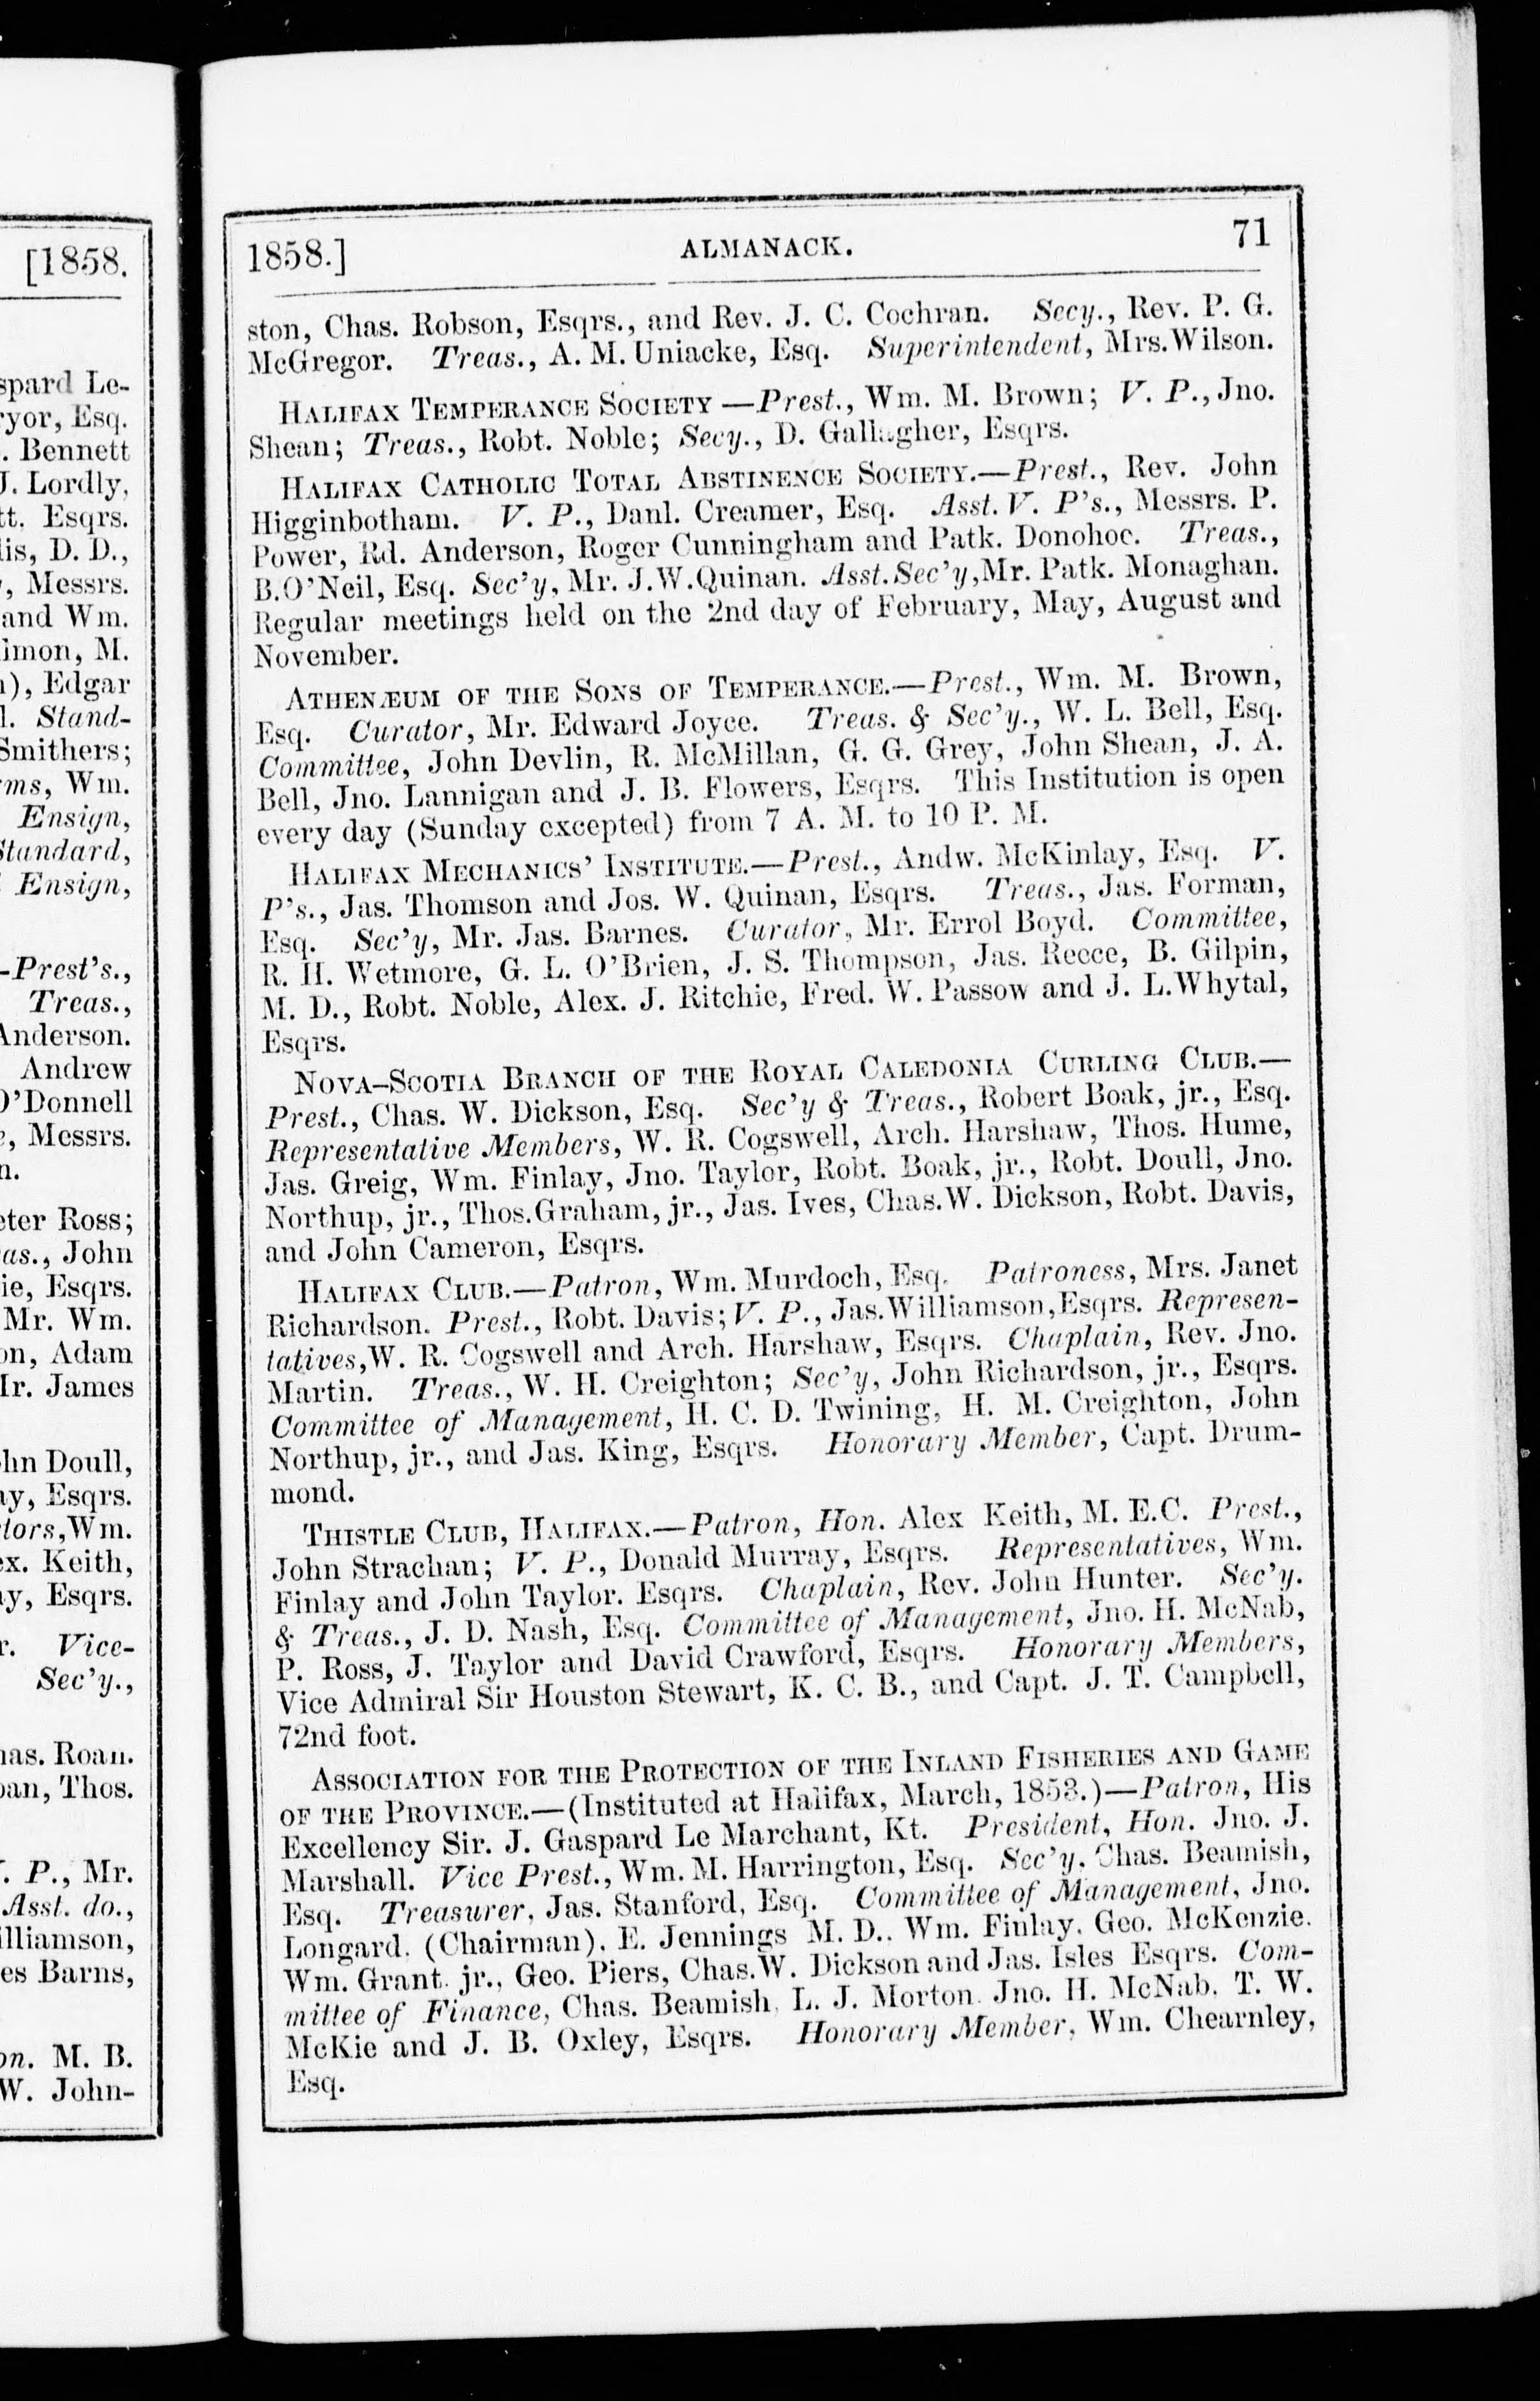 [1858.
spard Le-
ryor, Esq.
. Bennett
J. Lordly,
tt, Esqrs.
lis, D. D.,
, Messrs.
and Wm.
imon, M.
), Edgar
l. Stand-
Smithers;
rms, Wm.
Ensign,
Standard,
Ensign,
-Prest's.,
Treas.,
Anderson.
Andrew
O'Donnell
e, Messrs.
n.
eter Ross;
as., John
ie, Esqrs.
Mr. Wm.
on, Adam
Mr. James
ohn Doull,
ay, Esqrs.
ctors,Wm.
ex. Keith,
ay, Esqrs.
r. Vice-
Sec'y.,
has. Roan.
oan, Thos.
V. P., Mr.
Asst. do.,
illiamson,
es Barns,
on. M. B.
W. John-
1858.] ALMANACK. 71
ston, Chas. Robson, Esqrs., and Rev. J. C. Cochran. Secy., Rev. P. G.
McGregor. Treas., A. M. Uniacke, Esq. Superintendent, Mrs. Wilson.
HALIFAX TEMPERANCE SOCIETY —Prest., Wm. M. Brown; V. P., Jno.
Shean; Treas., Robt. Noble; Secy., D. Gallagher, Esqrs.
HALIFAX CATHOLIC TOTAL ABSTINENCE SOCIETY.—Prest., Rev. John
Higginbotham. V. P., Danl. Creamer, Esq. Asst. V. P's., Messrs. P.
Power, Rd. Anderson, Roger Cunningham and Patk. Donohoe. Treas.,
B.O'Neil, Esq. Sec'y, Mr. J.W.Quinan. Asst.Sec'y,Mr. Patk. Monaghan.
Regular meetings held on the 2nd day of February, May, August and
November.
ATHENÆUM OF THE SONS OF TEMPERANCE.—Prest., Wm. M. Brown,
Esq. Curator, Mr. Edward Joyce. Treas. & Sec'y., W. L. Bell, Esq.
Committee, John Devlin, R. McMillan, G. G. Grey, John Shean, J. A.
Bell, Jno. Lannigan and J. B. Flowers, Esqrs. This Institution is open
every day (Sunday excepted) from 7 A. M. to 10 P. M.
HALIFAX MECHANICS' INSTITUTE.—Prest., Andw. McKinlay, Esq. V.
P's., Jas. Thomson and Jos. W. Quinan, Esqrs. Treas., Jas. Forman,
Esq. Sec'y, Mr. Jas. Barnes. Curator, Mr. Errol Boyd. Committee,
R. H. Wetmore, G. L. O'Brien, J. S. Thompson, Jas. Reece, B. Gilpin,
M. D., Robt. Noble, Alex. J. Ritchie, Fred. W. Passow and J. L.Whytal,
Esqrs.
NOVA-SCOTIA BRANCH OF THE ROYAL CALEDONIA CURLING CLUB.—
Prest., Chas. W. Dickson, Esq. Sec'y & Treas., Robert Boak, jr., Esq.
Representative Members, W. R. Cogswell, Arch. Harshaw, Thos. Hume,
Jas. Greig, Wm. Finlay, Jno. Taylor, Robt. Boak, jr., Robt. Doull, Jno.
Northup, jr., Thos.Graham, jr., Jas. Ives, Chas.W. Dickson, Robt. Davis,
and John Cameron, Esqrs.
HALIFAX CLUB.—Patron, Wm. Murdoch, Esq. Patroness, Mrs. Janet
Richardson. Prest., Robt. Davis; V. P., Jas.Williamson,Esqrs. Represen-
tatives,W. R. Cogswell and Arch. Harshaw, Esqrs. Chaplain, Rev. Jno.
Martin. Treas., W. H. Creighton; Sec'y, John Richardson, jr., Esqrs.
Committee of Management, H. C. D. Twining, H. M. Creighton, John
Northup, jr., and Jas. King, Esqrs. Honorary Member, Capt. Drum-
mond.
THISTLE CLUB, HALIFAX.—Patron, Hon. Alex Keith, M. E.C. Prest.,
John Strachan; V. P., Donald Murray, Esqrs. Representatives, Wm.
Finlay and John Taylor. Esqrs. Chaplain, Rev. John Hunter. Sec'y.
& Treas., J. D. Nash, Esq. Committee of Management, Jno. H. McNab,
P. Ross, J. Taylor and David Crawford, Esqrs. Honorary Members,
Vice Admiral Sir Houston Stewart, K. C. B., and Capt. J. T. Campbell,
72nd foot.
ASSOCIATION FOR THE PROTECTION OF THE INLAND FISHERIES AND GAME
OF THE PROVINCE.—(Instituted at Halifax, March, 1853.)—Patron, His
Excellency Sir. J. Gaspard Le Marchant, Kt. President, Hon. Jno. J.
Marshall. Vice Prest., Wm. M. Harrington, Esq. Sec'y, Chas. Beamish,
Esq. Treasurer, Jas. Stanford, Esq. Committee of Management, Jno.
Longard. (Chairman), E. Jennings M. D., Wm. Finlay, Geo. McKenzie.
Wm. Grant. jr., Geo. Piers, Chas.W. Dickson and Jas. Isles Esqrs. Com-
mittee of Finance, Chas. Beamish, L. J. Morton. Jno. H. McNab, T. W.
McKie and J. B. Oxley, Esqrs. Honorary Member, Wm. Chearnley,
Esq.